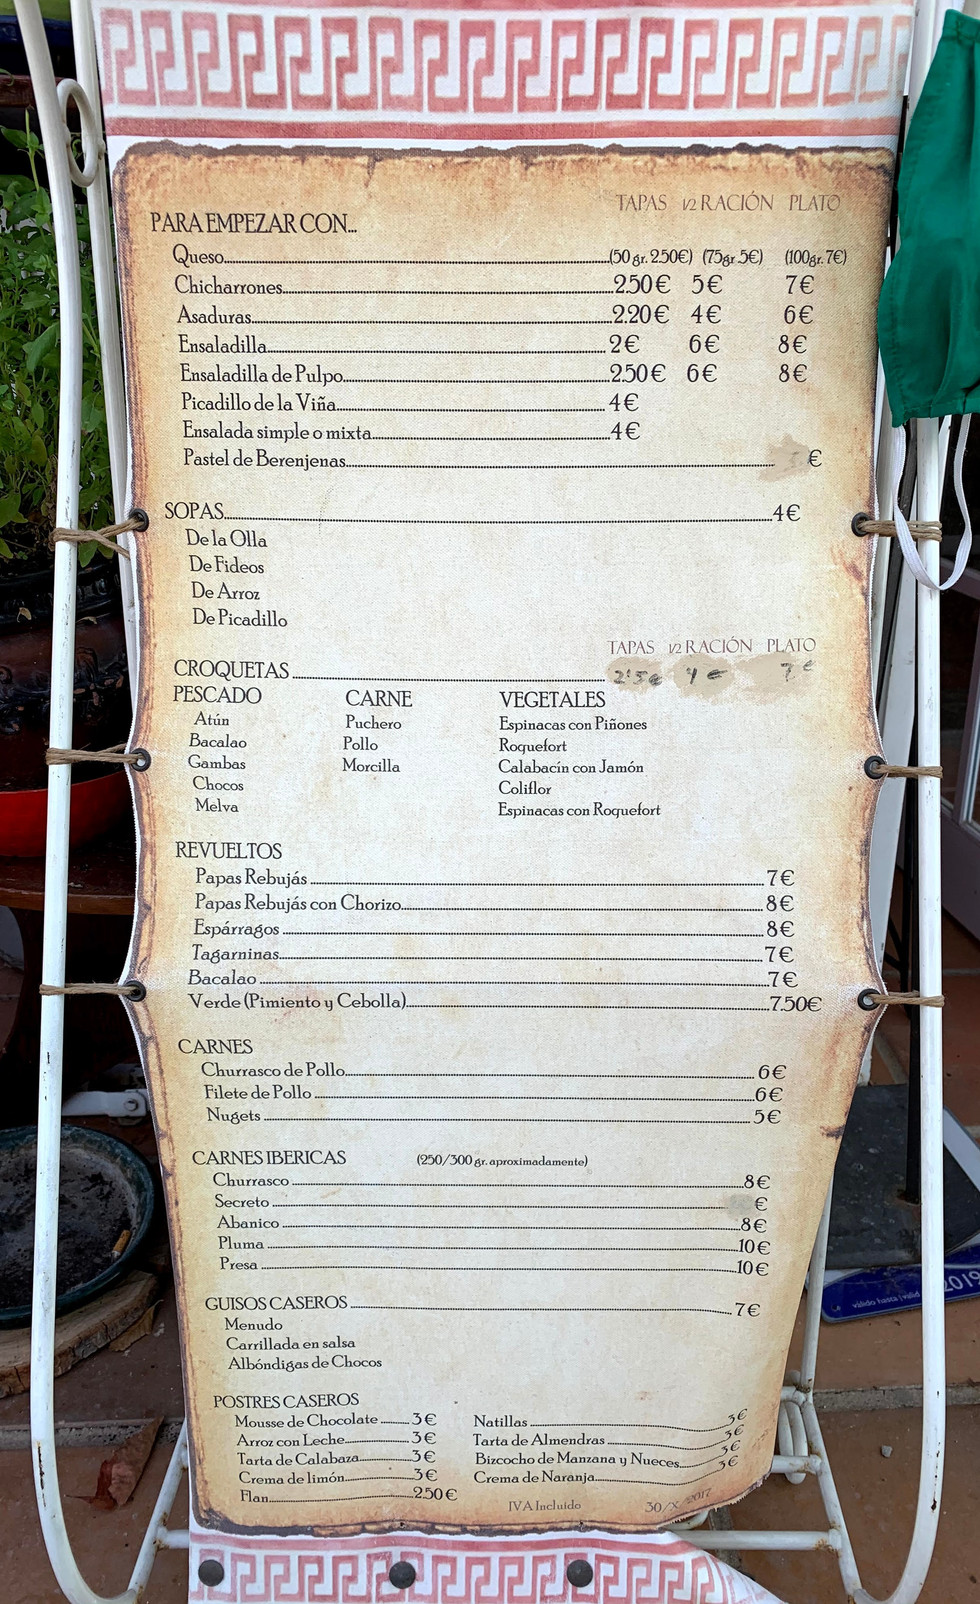 TAPAS 1/2 RACIÓN PLATO
PARA EMPEZAR CON...
Queso (50 gr. 2.50€) (75gr. 5€) (100gr. 7€)
Chicharrones 2.50€ 5€ 7€
Asaduras 2.20€ 4€ 6€
Ensaladilla 2€ 6€ 8€
Ensaladilla de Pulpo 2.50€ 6€ 8€
Picadillo de la Viña 4€
Ensalada simple o mixta 4€
Pastel de Berenjenas €
SOPAS 4€
De la Olla
De Fideos
De Arroz
De Picadillo
TAPAS 1/2 RACIÓN PLATO
CROQUETAS 2'5€ 4€ 7€
PESCADO CARNE VEGETALES
Atún Puchero Espinacas con Piñones
Bacalao Pollo Roquefort
Gambas Morcilla Calabacín con Jamón
Chocos Coliflor
Melva Espinacas con Roquefort
REVUELTOS
Papas Rebujás 7€
Papas Rebujás con Chorizo 8€
Espárragos 8€
Tagarninas 7€
Bacalao 7€
Verde (Pimiento y Cebolla) 7.50€
CARNES
Churrasco de Pollo 6€
Filete de Pollo 6€
Nugets 5€
CARNES IBERICAS (250/300 gr. aproximadamente)
Churrasco 8€
Secreto €
Abanico 8€
Pluma 10€
Presa 10€
GUISOS CASEROS 7€
Menudo
Carrillada en salsa
Albóndigas de Chocos
POSTRES CASEROS
Mousse de Chocolate 3€ Natillas 3€
Arroz con Leche 3€ Tarta de Almendras 3€
Tarta de Calabaza 3€ Bizcocho de Manzana y Nueces 3€
Crema de limón 3€ Crema de Naranja 3€
Flan 2.50€
IVA Incluido 30/X/2017